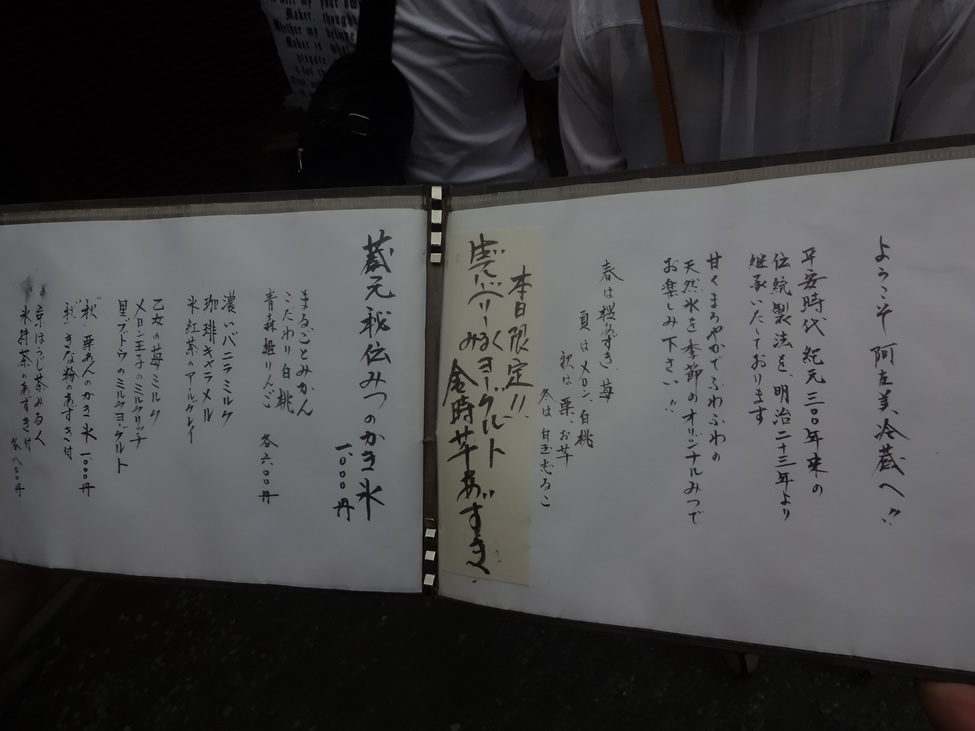 ようこそ 阿左美冷蔵へ!!
平安時代 紀元三〇〇年来の
伝統製法を、明治二十三年より
継承いたしております
甘くまろやかでふわふわの
天然水を季節のオリジナルみつで
お楽しみ下さい!!
春は桜あずき、苺
夏はメロン、白桃
秋は栗、お芋
冬は白玉志るこ
本日限定!!
みるくヨーグルト
金時芋あずき
蔵元秘伝みつのかき氷
一、〇〇〇円
まるごとみかん
こだわり白桃
青森姫りんご
各六〇〇円
濃いバニラミルク
珈琲キャラメル
氷紅茶のアールグレイ
乙女の苺ミルク
メロン王子のミルクリッチ
黒ブドウのミルクヨーグルト
"秋" 栗あんのかき氷 一、〇〇〇円
"秋" きな粉のあずき付
京ほうじ茶みるく
氷抹茶のあずき付
各八〇〇円
Maker thought
Whether my
Maker is what
prepare